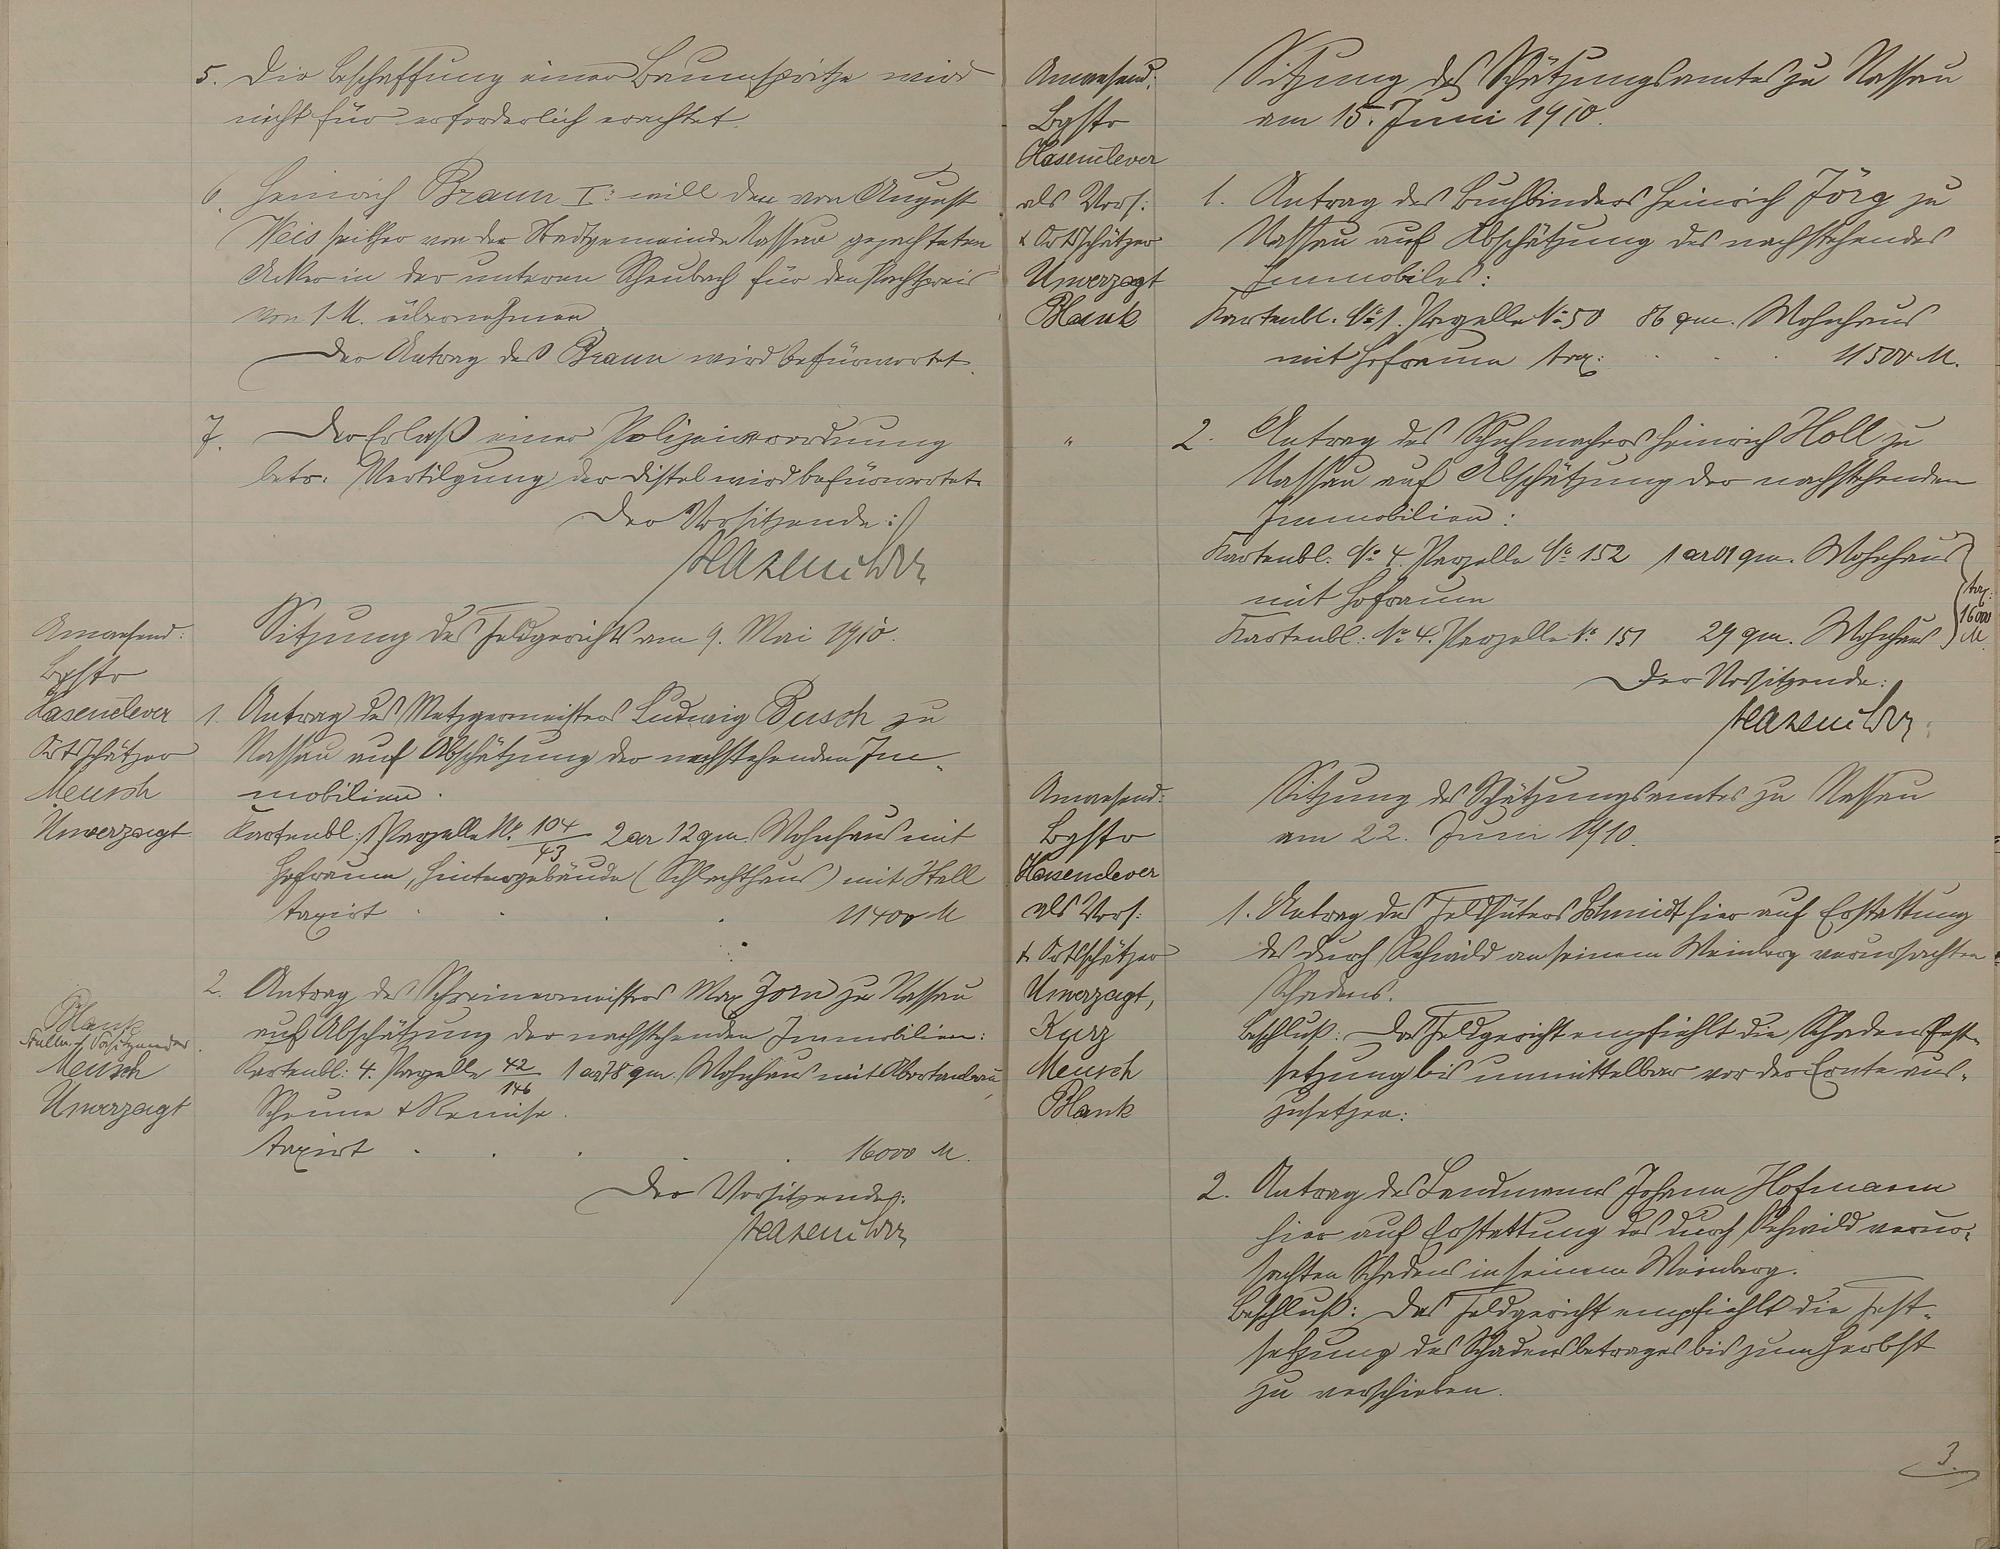 5. Die Beschaffung einer Baumspritze wird
nicht für erforderlich erachtet.
6. Heinrich Braun I: will den von August
Weis seither von der Stadtgemeinde Nassau gepachteten
Acker in der unteren Scheubach für den Pachtpreis
von 1 M. übernehmen
Der Antrag des Braun wird befürwortet.
7. Der Erlaß einer Polizeiverordnung
betr. Vertilgung der Distel wird befürwortet.
Der Vorsitzende:
Hasenclever
Anwesend:
Bgstr
Hasenclever
Ortsschätzer
Meusch
Unverzagt
Sitzung des Feldgerichts am 9. Mai 1910.
1. Antrag des Metzgermeisters Ludwig Busch zu
Nassau auf Abschätzung der nachstehenden Im-
mobilien.
Kartenbl: 1 Parzelle No. 104/43 2 ar 12 qm. Wohnhaus mit
Hofraum, Hintergebäude (Schlachthaus) mit Stall
taxirt . . . . 11400 M
Blank
Stellv. Vorsitzender
Meusch
Unverzagt
2. Antrag des Schreinermeisters Max Zorn zu Nassau
auf Abschätzung der nachstehenden Immobilien:
Kartenbl: 4. Parzelle 42/146 1 ar 78 qm. Wohnhaus mit
Scheune & Remise.
taxirt . . . . . 16000 M.
Der Vorsitzende:
Hasenclever
Anwesend:
Bgstr
Hasenclever
als Vors:
& Ortsschätzer
Unverzagt
Blank
Sitzung des Schätzungsamtes zu Nassau
am 15. Juni 1910.
1. Antrag des Buchbinders Heinrich Jörg zu
Nassau auf Abschätzung des nachstehendes
Immobiles:
Kartenbl. No 1. Parzelle No 50 86 qm. Wohnhaus
mit Hofraum tax: . . . 11500 M.
"
2. Antrag des Schuhmachers Heinrich Holl zu
Nassau auf Abschätzung der nachstehenden
Immobilien:
Kartenbl: No 4. Parzelle No 152 1 ar 01 qm. Wohnhaus
mit Hofraum
Kartenbl: No 4. Parzelle No 151 29 qm. Wohnhaus
tax:
16000
M.
Der Vorsitzende:
Hasenclever
Anwesend:
Bgstr
Hasenclever
als Vors:
& Ortsschätzer
Unverzagt,
Kurz
Meusch
Blank
Sitzung des Schätzungsamtes zu Nassau
am 22. Juni 1910.
1. Antrag des Feldhüters Schmidt hier auf Erstattung
des durch Rehwild an seinem Weinberg verursachten
Schadens.
Beschluß: Das Feldgericht empfiehlt die Schadensfest-
setzung bis unmittelbar vor der Ernte aus-
zusetzen:
2. Antrag des Landmanns Johann Hofmann
hier auf Erstattung des durch Rehwild verur-
sachten Schadens in seinem Weinberg.
Beschluß: Das Feldgericht empfiehlt die Fest-
setzung des Schadensbetrages bis zum Herbst
zu verschieben.
3.